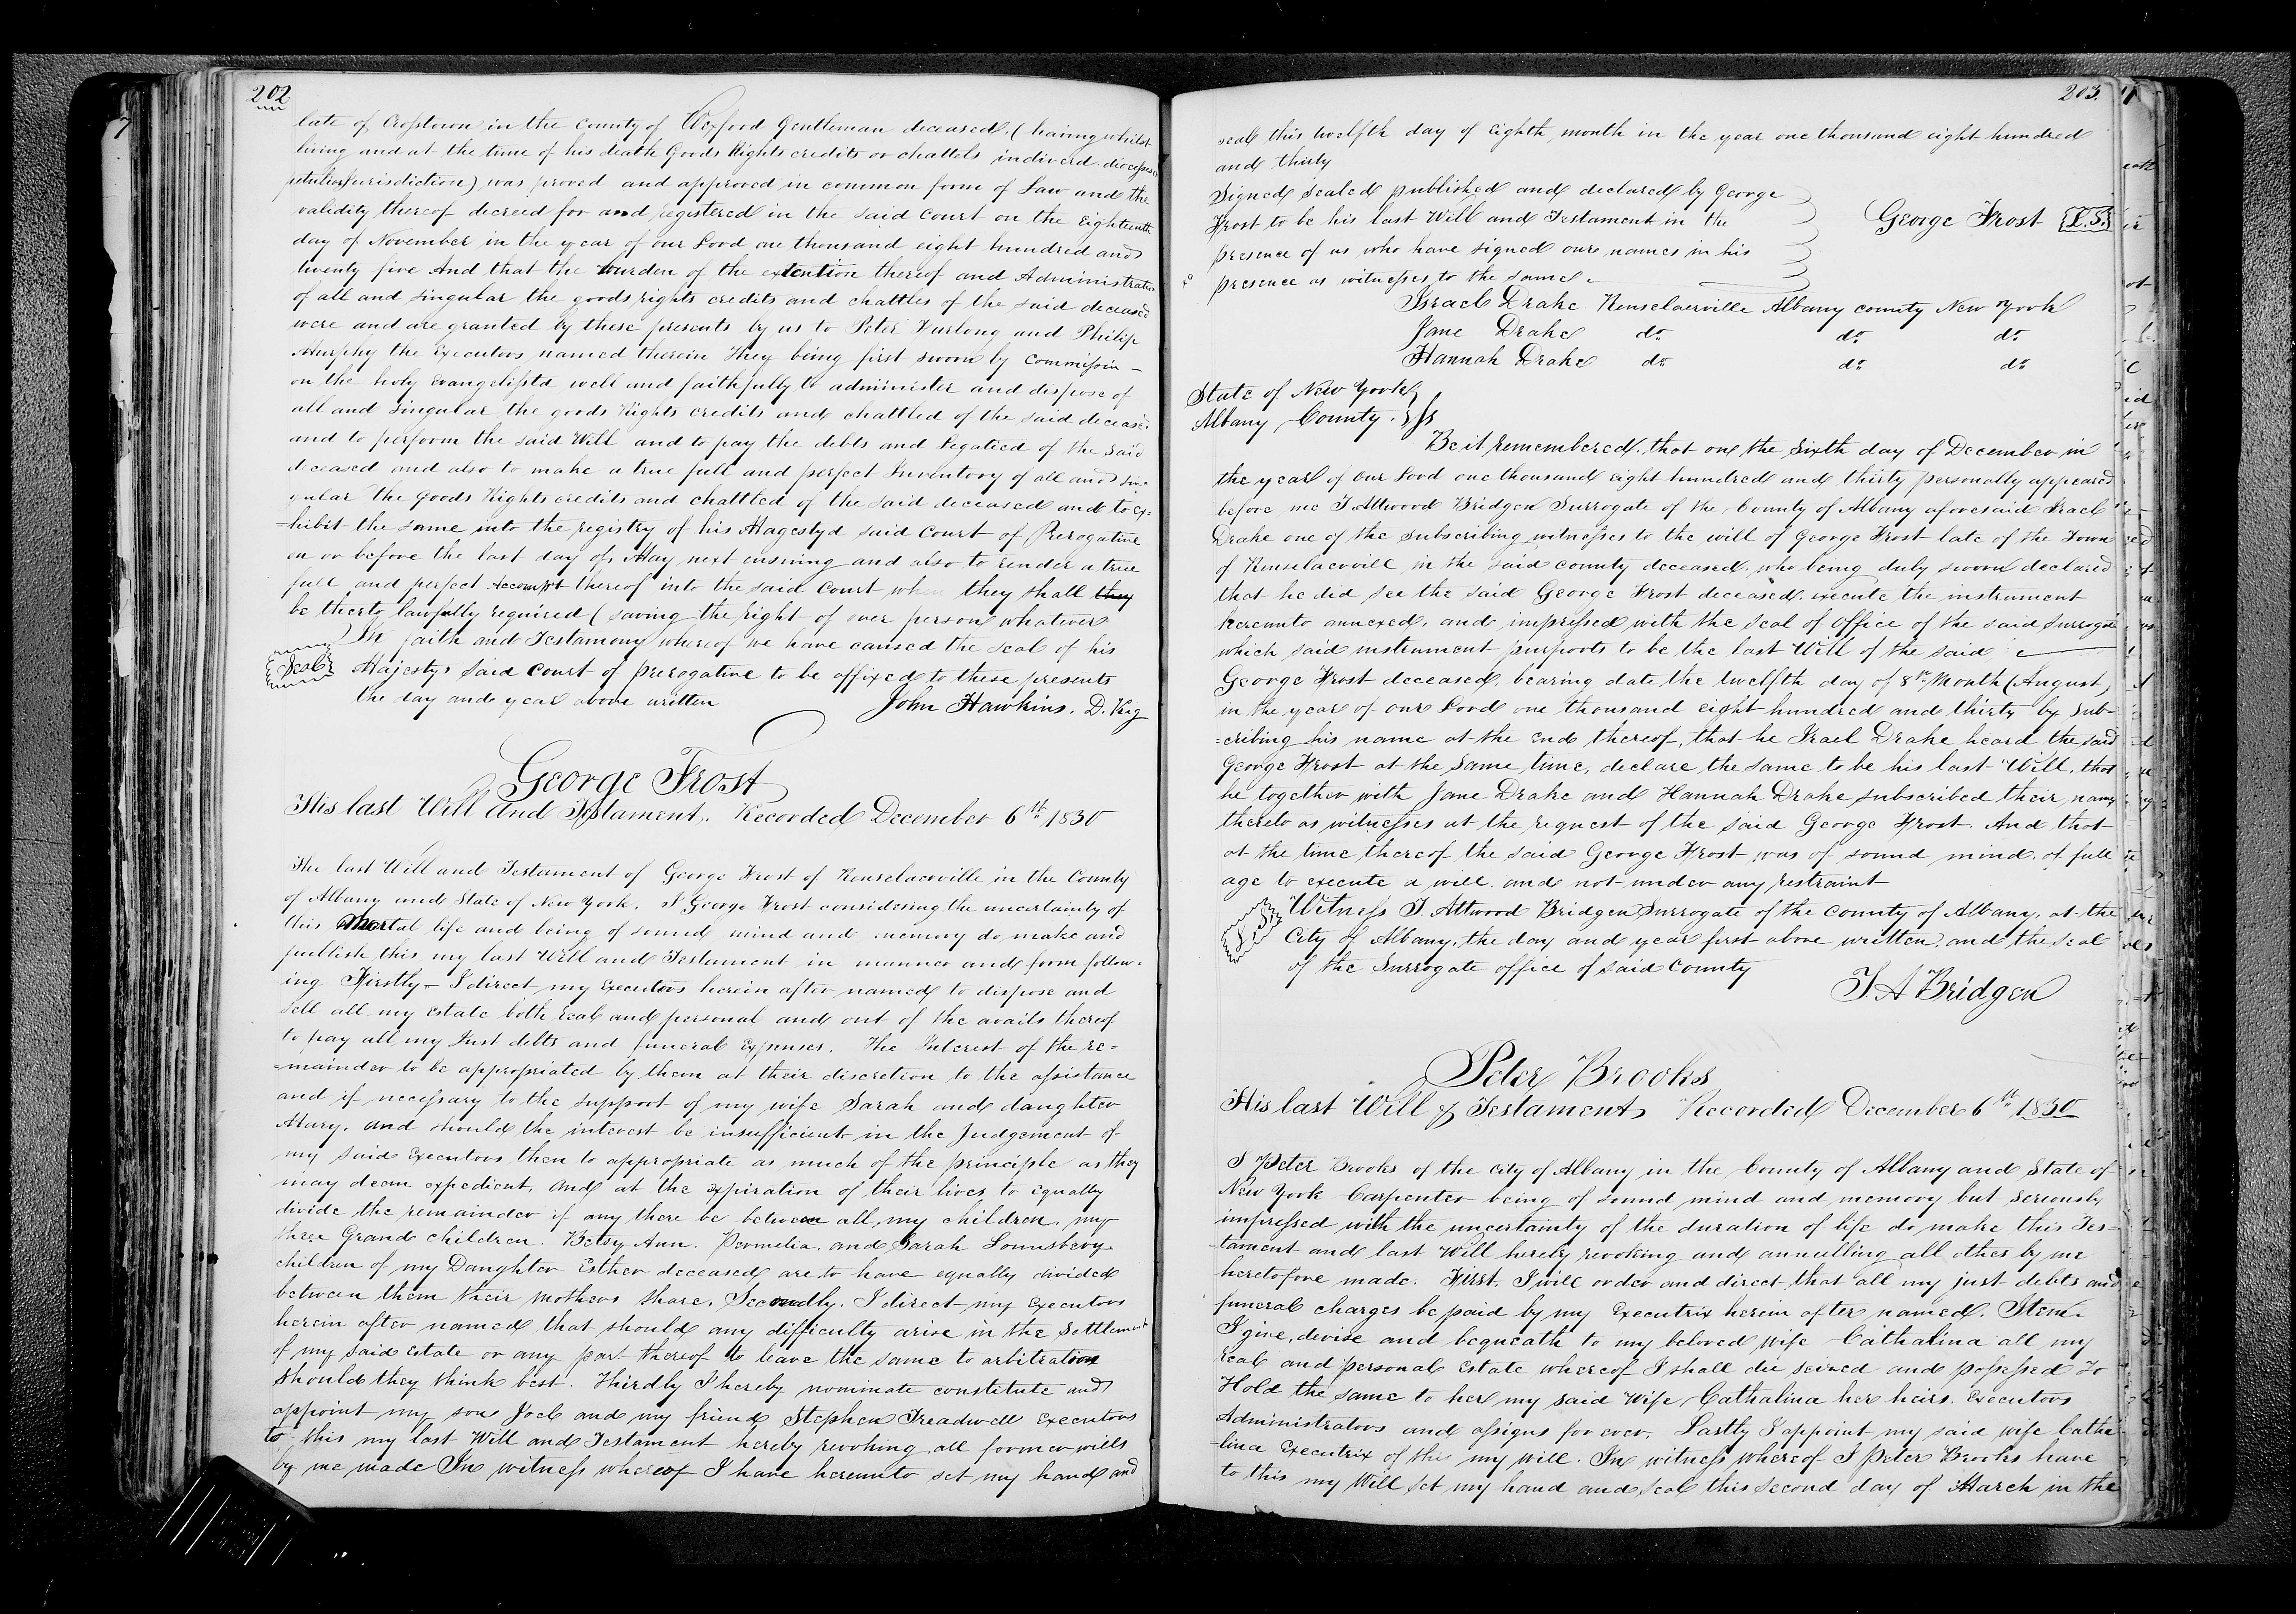 202
late of Crosstown in the County of Wexford Gentleman deceased. (having whilst
living and at the time of his death Goods Rights credits or chattels in diverd diocesses
peculiar Jurisdiction) was proved and approved in common form of Law and the
validity thereof decreed for and registered in the said Court on the Eighteenth
day of November in the year of our Lord one thousand eight hundred and
twenty five And that the burden of the extention thereof and Administration
of all and singular the goods rights credits and chattles of the said deceased
were and are granted by these presents by us to Peter Furlong and Philip
Murphy the Executors named therein they being first sworn by Commissin -
on the holy Evangelistd well and faithfully to administer and dispose of
all and singular the goods Rights credits and chattled of the said deceased
and to perform the said Will and to pay the debts and Legatied of the said
deceased and also to make a true full and perfect Inventory of all and sin-
gular the Goods Rights credits and chattled of the said deceased and to ex-
-hibit the same into the registry of his Magestyd said Court of Prerogative
on or before the last day of May next ensuing and also to render a true
full and perfect accompt thereof into the said Court when they shall they
be therto lawfully required (saving the right of over person whatever
In faith and Testamony whereof we have caused the seal of his
Seal Majestys said Court of prerogative to be affixed to these presents
the day and year above written John Hawkins. D. Reg
George Frost
His last Will and Testament. Recorded December 6th 1830
The last Will and Testament of George Frost of Renselaerville in the County
of Albany and State of New York. I George Frost considering the uncertainty of
this Mortal life and being of sound mind and memory do make and
publish this my last Will and Testament in manner and form follow-
ing Firstly - I direct my Executors herein after named to dispose and
sell all my Estate both real and personal and out of the avails thereof
to pay all my Just debts and funeral Expenses. The Interest of the re=
=mainder to be appropriated by them at their discretion to the assistance
and if necessary to the support of my wife Sarah and daughter
Mary. and should the interest be insufficient in the Judgement of
my said Executors then to appropriate as much of the principle as they
may deem expedient, and at the expiration of their lives to equally
divide the remainder if any there be between all my children. my
three Grand children. Betsy Ann. Permelia. and Sarah Lounsbery
children of my Daughter Esther deceased are to have equally divided
between them their mothers share. Secondly. I direct my Executors
herein after named that should any difficulty arise in the Settlement
of my said Estate or any part thereof to leave the same to arbitration
should they think best. Thirdly I hereby nominate constitute and
appoint my son Joel and my friend Stephen Treadwell Executors
to this my last Will and Testament hereby revoking all former wills
by me made In witness whereof I have hereunto set my hand and
203.
seal this twelfth day of Eighth month in the year one thousand eight hundred
and thirty
Signed Sealed published and declared by George
Frost to be his last Will and Testament in the George Frost L.S.
presence of us who have signed our names in his
presence as witnesses to the same
Israel Drake Renselaerville Albany county New York
Jane Drake do. do. do.
Hannah Drake do. do. do.
State of New York
Albany County. ss
Be it remembered. that one the Sixth day of December in
the year of our Lord one thousand eight hundred and thirty personally appeared
before me T Attwood Bridgen Surrogate of the County of Albany aforesaid Israel
Drake one of the subscribing witnesses to the will of George Frost late of the Town
of Renselaervill in the said county deceased. who being duly sworn declared
that he did see the said George Frost deceased. execute the instrument
hereunto annexed, and impressed with the seal of Office of the said Surrogate
which said instrument purports to be the last Will of the said
George Frost deceased. bearing date the twelfth day of 8th Month (August)
in the year of our Lord one thousand eight hundred and thirty by sub-
=cribing his name at the end thereof, that he Israel Drake heard the said
George Frost at the same time, declare the same to be his last Will, that
he together with Jane Drake and Hannah Drake subscribed their name
thereto as witnesses at the request of the said George Frost. And that
at the time thereof the said George Frost was of sound mind. of full
age to execute a will. and not under any restraint
L.S. Witness T. Attwood Bridgen Surrogate of the County of Albany, at the
City of Albany, the day and year first above written. and the seal
of the Surrogate office of said County
T. A Bridgen
Peter Brooks
His last Will & Testament Recorded December 6th 1830
I Peter Brooks of the City of Albany in the County of Albany and State of
New York Carpenter being of sound mind and memory but seriously
impressed with the uncertainty of the duration of life do make this Tes=
-tament and last Will hereby revoking and annulling all other by me
heretofore made. First. I will order and direct that all my just debts and
funeral charges be paid by my Executrix herein after named. Item.
I give, devise and bequeath to my beloved wife Cathalina all my
real and personal Estate whereof I shall die seized and possessed To
Hold the same to her my said Wife Cathalina her heirs. Executors
Administrators and assigns for ever. Lastly I appoint my said wife Catha-
-lina Executrix of this my will. In witness whereof I Peter Brooks have
to this my Will set my hand and seal this second day of March in the